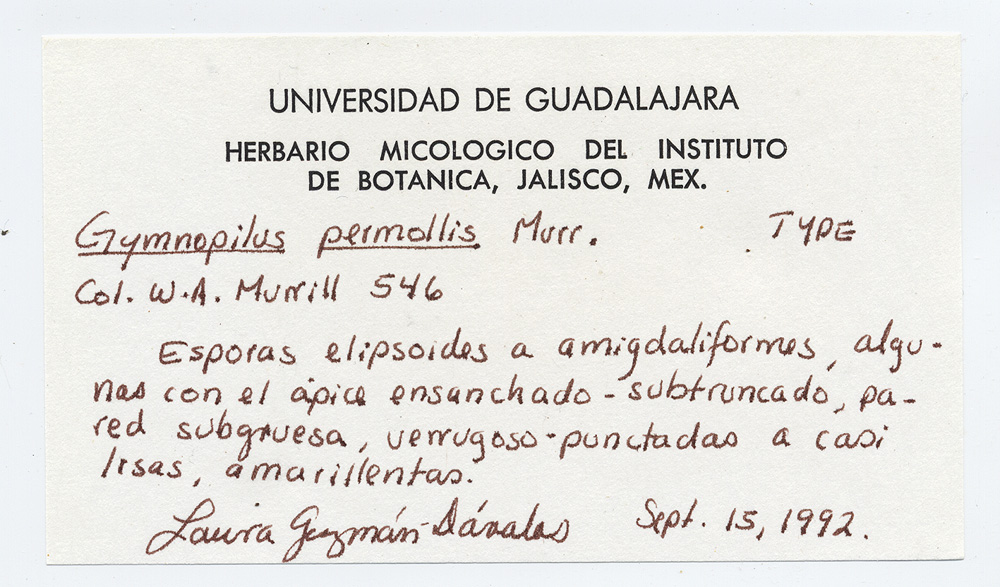 UNIVERSIDAD DE GUADALAJARA
HERBARIO MICOLOGICO DEL INSTITUTO
DE BOTANICA, JALISCO, MEX.
Gymnopilus permollis Murr. TYPE
Col. W.A. Murrill 546
Esporas elipsoides a amigdaliformes, algu-
nas con el ápice ensanchado-subtruncado, pa-
red subgruesa, verrugoso-punctadas a casi
lisas, amarillentas.
Laura Guzmán-Dávalos Sept. 15, 1992.